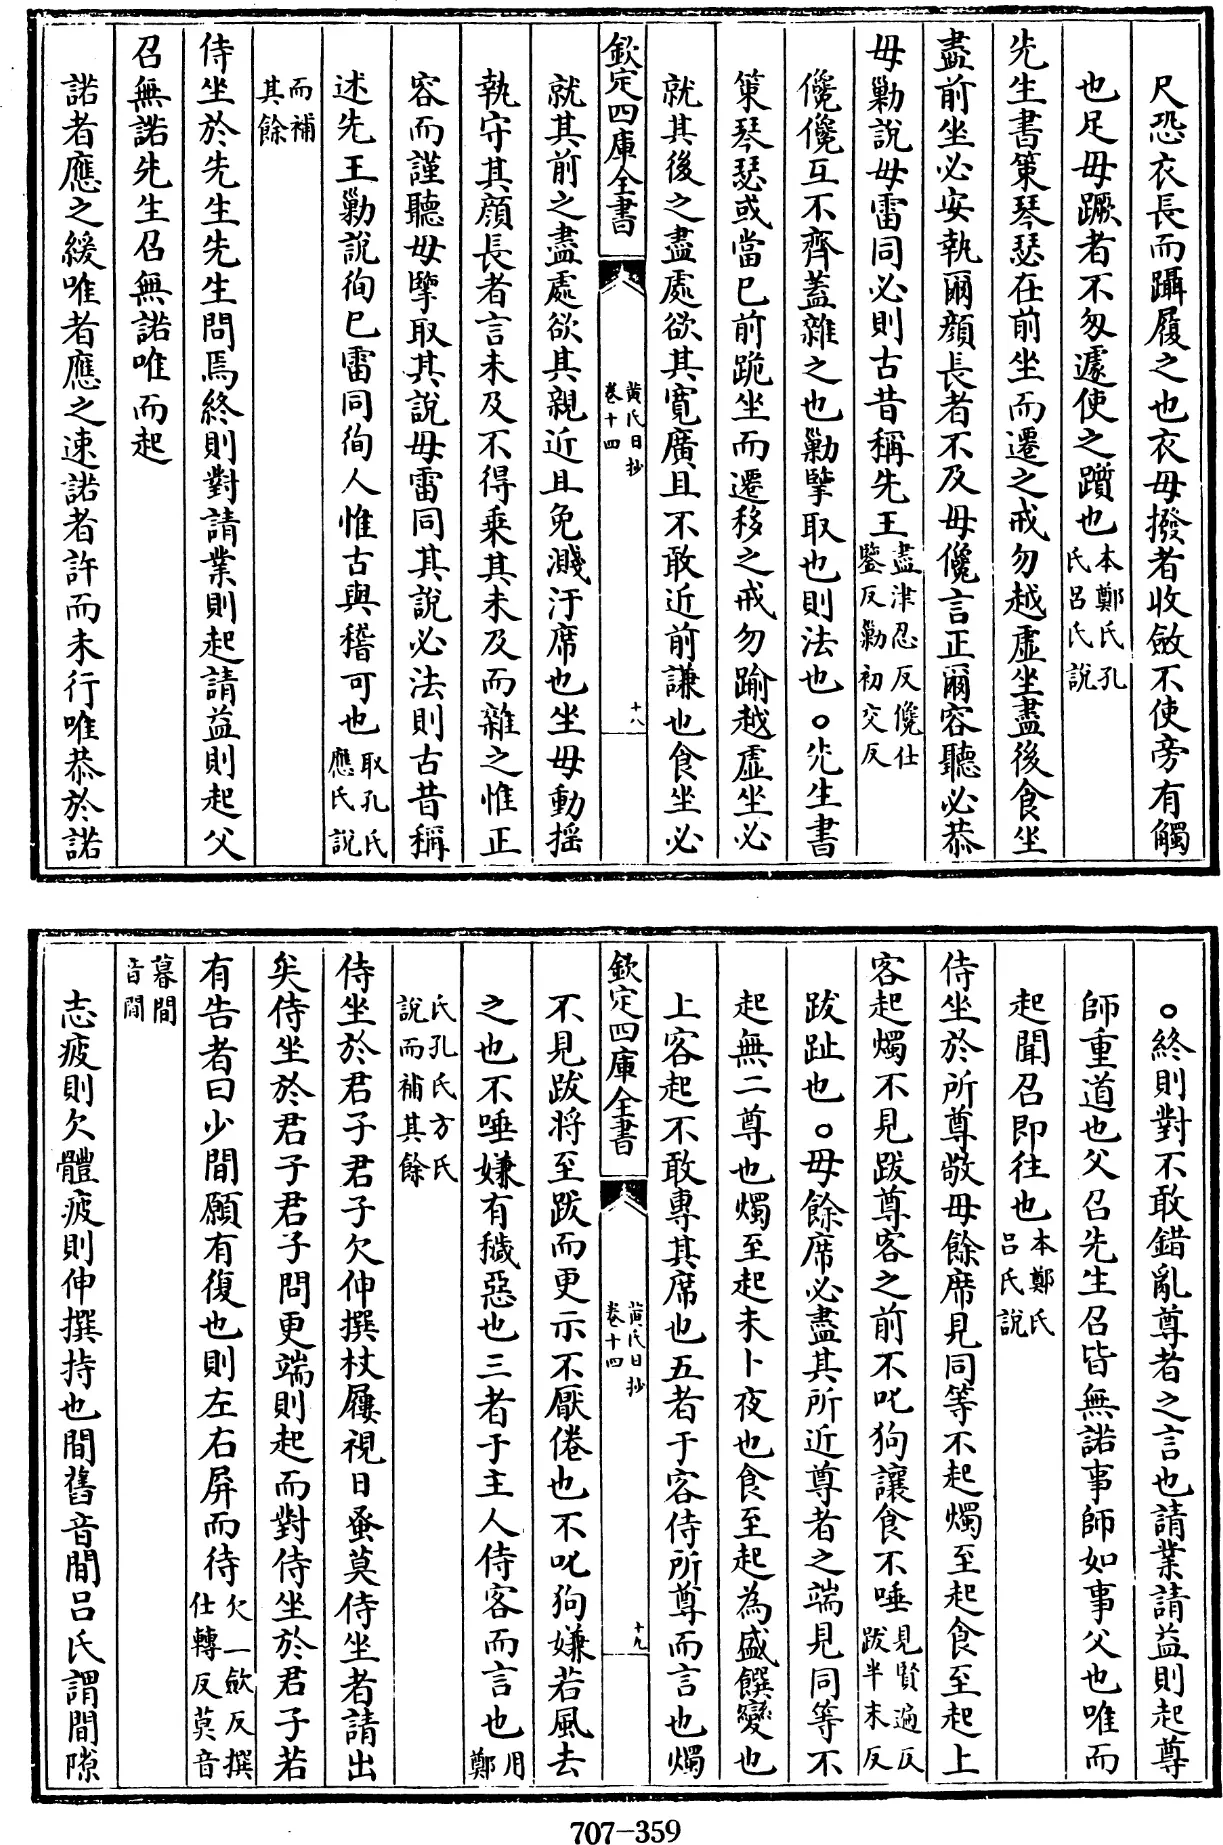 尺恐衣長而躡履之也衣毋撥者收斂不使旁有觸
也足毋蹶者不匆遽使之躓也本鄭氏孔氏呂氏說
先生書策琴瑟在前坐而遷之戒勿越虛坐盡後食坐
盡前坐必安執爾顏長者不及毋儳言正爾容聽必恭
毋勦說毋雷同必則古昔稱先王盡津忍反儳仕鑒反勦初交反
儳儳互不齊蓋雜之也勦擥取也則法也○先生書
策琴瑟或當已前跪坐而遷移之戒勿踰越虛坐必
就其後之盡處欲其寬廣且不敢近前謙也食坐必
欽定四庫全書
黃氏日抄
卷十四
十八
就其前之盡處欲其親近且免濺汙席也坐毋動搖
執守其顏長者言未及不得乗其未及而雜之惟正
容而謹聽毋擥取其說毋雷同其說必法則古昔稱
述先王勦說徇已雷同徇人惟古與稽可也取孔氏應氏說
而補其餘
侍坐於先生先生問焉終則對請業則起請益則起父
召無諾先生召無諾唯而起
諾者應之緩唯者應之速諾者許而未行唯恭於諾
○終則對不敢錯亂尊者之言也請業請益則起尊
師重道也父召先生召皆無諾事師如事父也唯而
起聞召即往也本鄭氏呂氏說
侍坐於所尊敬毋餘席見同等不起燭至起食至起上
客起燭不見跋尊客之前不叱狗讓食不唾見賢遍反跋半末反
跋趾也○毋餘席必盡其所近尊者之端見同等不
起無二尊也燭至起未卜夜也食至起為盛饌變也
上客起不敢專其席也五者于客侍所尊而言也燭
欽定四庫全書
黃氏日抄
卷十四
十九
不見跋將至跋而更示不厭倦也不叱狗嫌若風去
之也不唾嫌有穢惡也三者于主人侍客而言也用鄭
氏孔氏方氏說而補其餘
侍坐於君子君子欠伸撰杖屨視日蚤莫侍坐者請出
矣侍坐於君子君子問更端則起而對侍坐於君子若
有告者曰少間願有復也則左右屏而待欠一歛反撰仕轉反莫音
暮間音閒
志疲則欠體疲則伸撰持也間舊音閒呂氏謂間隙
707-359